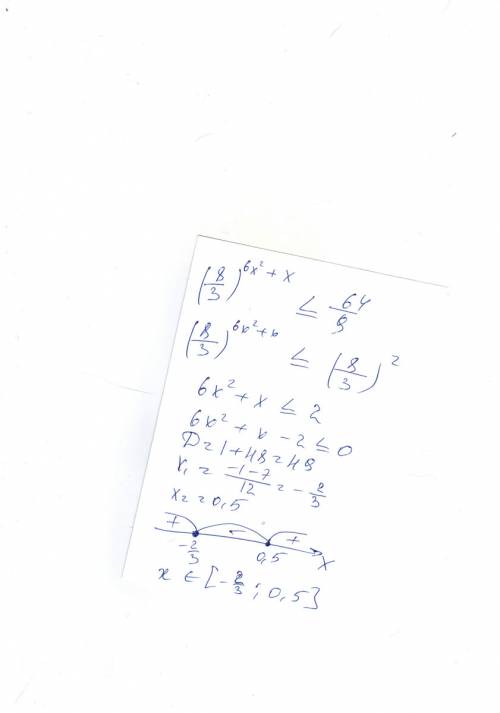 (8/3)^(6x²+x) ≤ 64/9
(8/3)^(6x²+x) ≤ (8/3)²
6x² + x ≤ 2
6x² + x - 2 ≤ 0
D = 1 + 48 = 49
x₁ = (-1-7)/12 = -2/3
x₂ = 0,5
+ - +
-2/3 0,5 x
x ∈ [-2/3 ; 0,5]